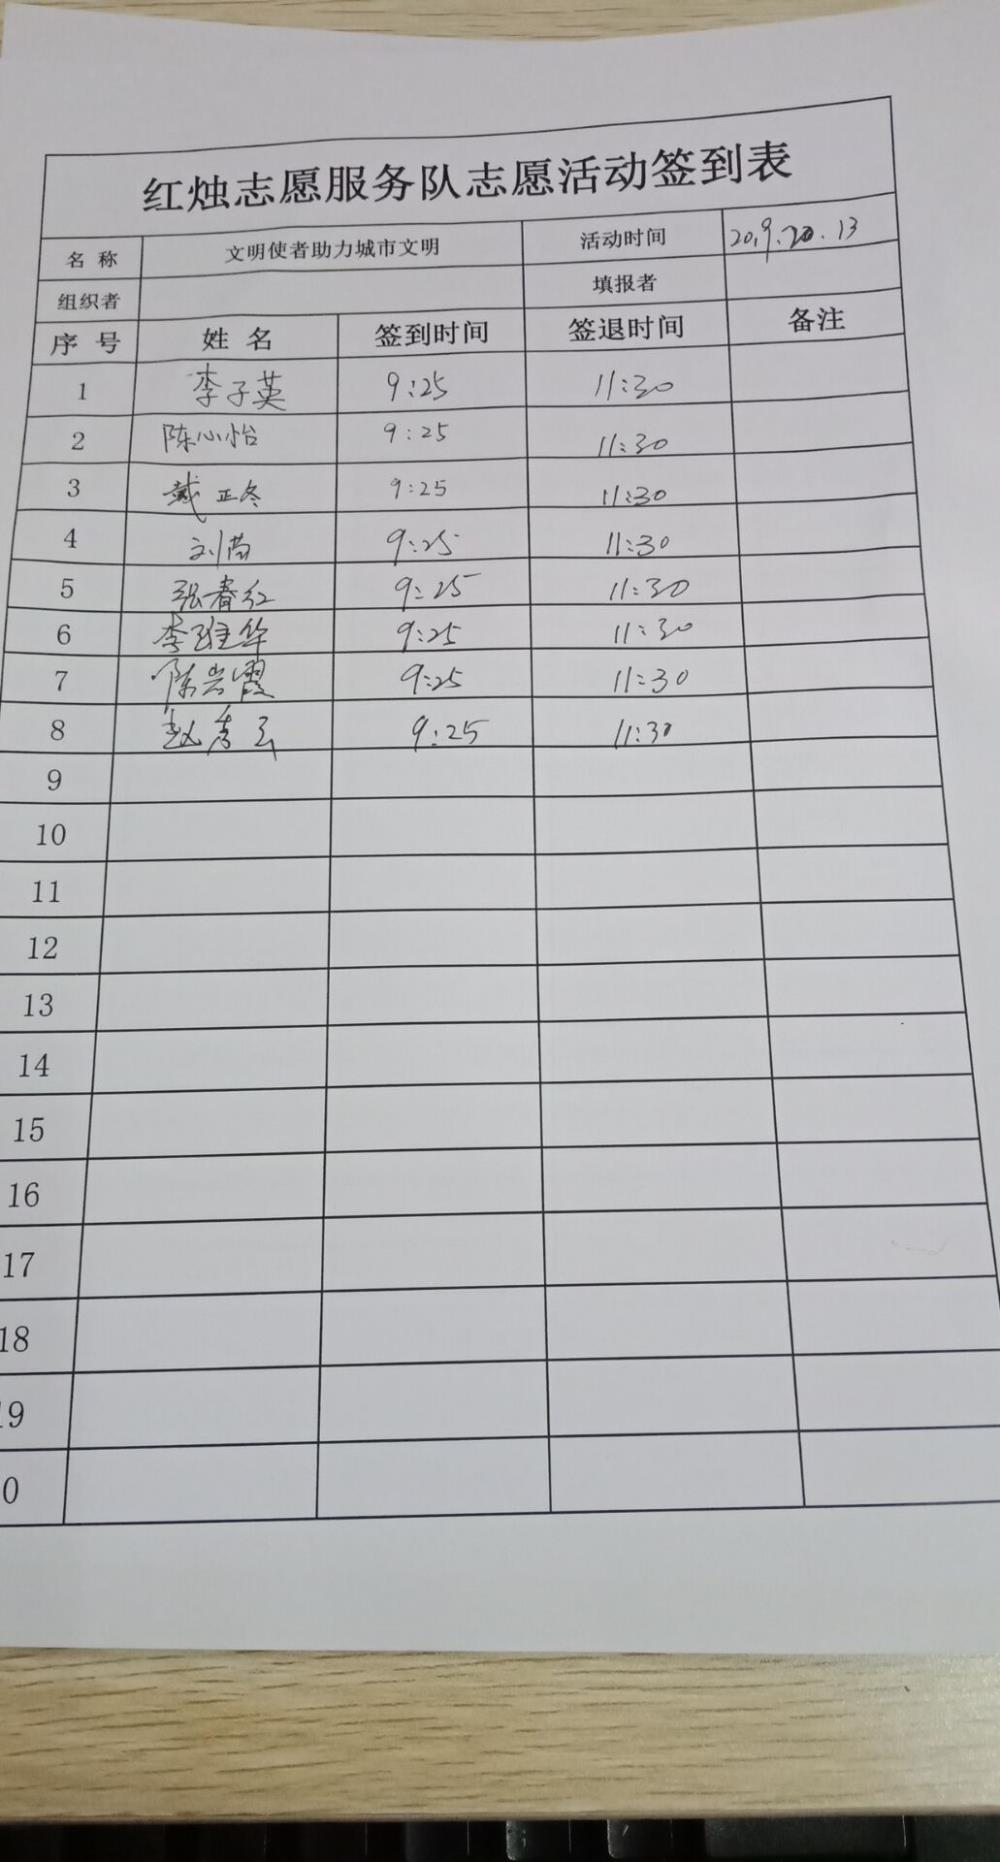 红烛志愿服务队志愿活动签到表
名 称 文明使者助力城市文明 活动时间
组织者 填报者
序 号 姓 名 签到时间 签退时间 备注
1 李子英 9:25 11:30
2 陈心怡 9:25 11:30
3 戴正冬 9:25 11:30
4 9:25 11:30
5 张春红 9:25 11:30
6 李维华 9:25 11:30
7 陈兴霞 9:25 11:30
8 赵秀云 9:25 11:30
9
10
11
12
13
14
15
16
17
18
19
0